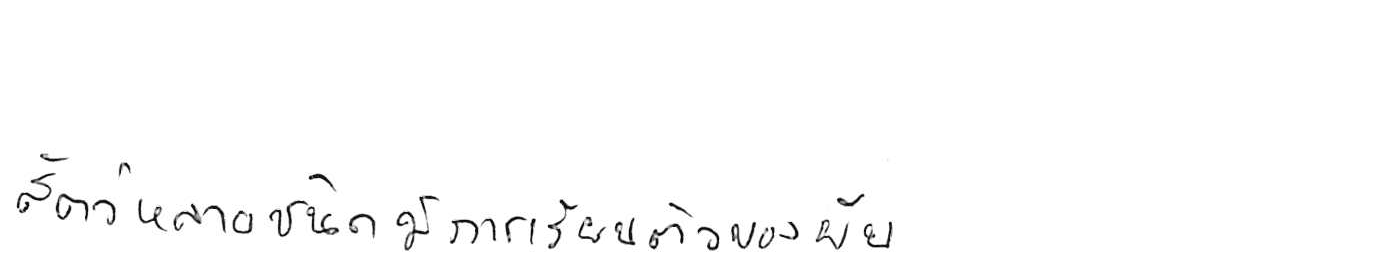 สัตว์หลายชนิดมีการเรียบตัวของยีน